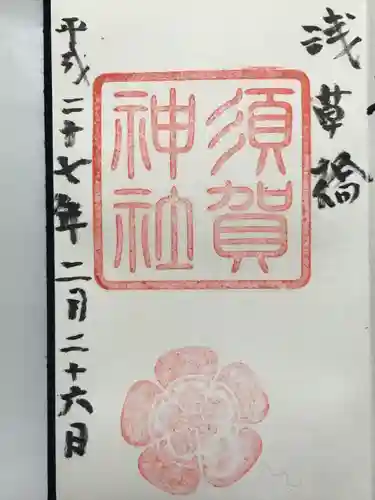 浅草橋
須賀
神社
平成二十七年二月二十六日